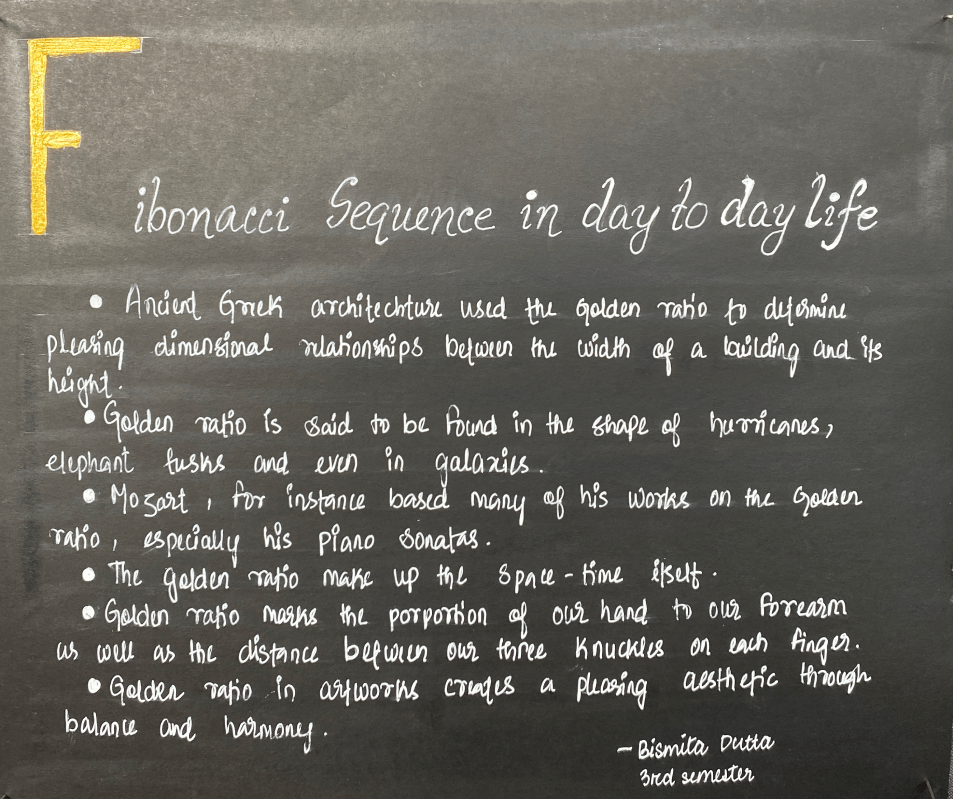 Fibonacci Sequence in day to day life
• Ancient Greek architechture used the golden ratio to determine
pleasing dimensional relationships between the width of a building and its
height.
• Golden ratio is said to be found in the shape of hurricanes,
elephant tusks and even in galaxies.
• Mozart, for instance based many of his works on the golden
ratio, especially his piano sonatas.
• The golden ratio make up the space-time itself.
• Golden ratio marks the porportion of our hand to our forearm
as well as the distance between our three knuckles on each finger.
• Golden ratio in artworks creates a pleasing aesthetic through
balance and harmony.
- Bismita Dutta
3rd semester